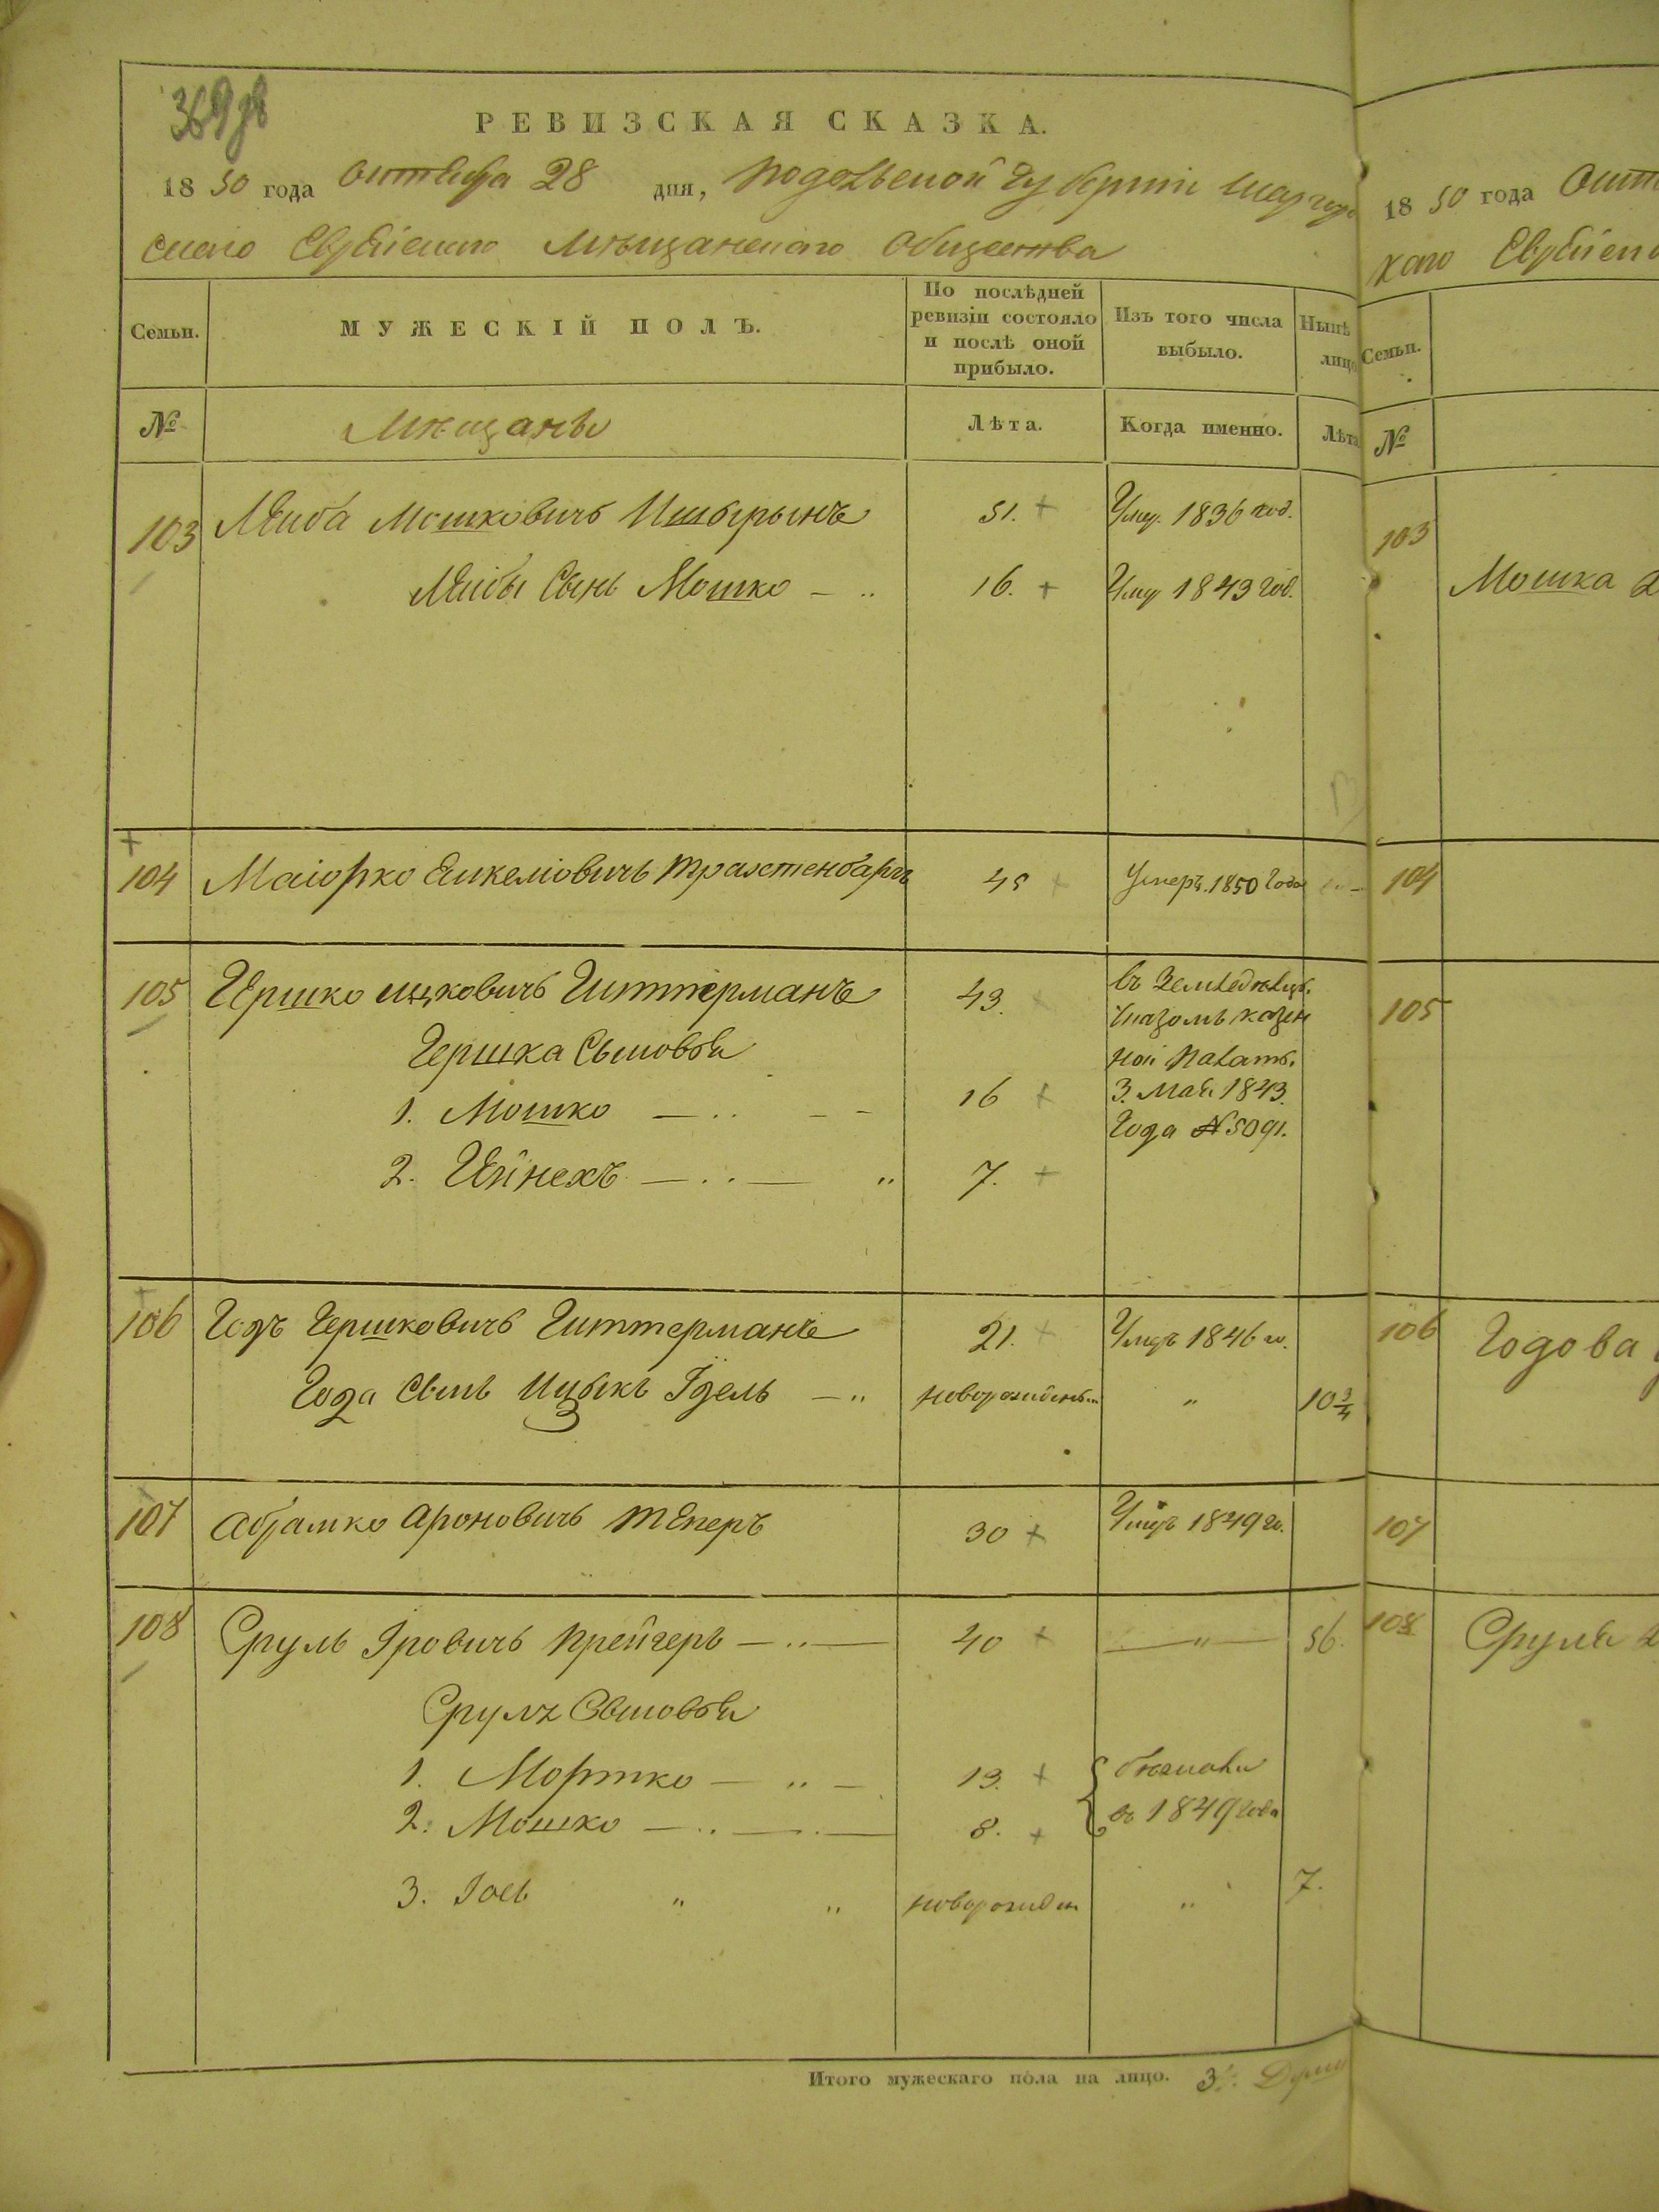 369
РЕВИЗСКАЯ СКАЗКА.
1850 года октября 28 дня, Подольской Губернїи Шаргород
скаго Еврейскаго Мѣщанскаго Общества
Семьи. МУЖЕСКІЙ ПОЛЪ. По послѣдней ревизіи состояло и послѣ оной прибыло. Изъ того числа выбыло. Нынѣ лицо
№ Мѣщане Лѣта. Когда именно. Лѣта
103 Лейба Мошковичъ 51. Умер. 1836 год.
Лейбы Сынъ Мошко 16. Умер 1843 год.
104 Маіорко Трахтенбаргъ 45 Умеръ. 1850 Года
105 Гершко Ицковичъ Гиттерманъ 43. въ Земледѣльц.
Указомъ казен
Гершка Сыновья ной Палат.
1. Мошко 16 3. Мая 1843.
Года № 5091.
2. Гейнехъ 7.
106 Годъ Гершковичъ Гиттерманъ 21. Умеръ 1846 го.
Года Сынъ Ицыкъ Ідель новорожден. " 10 3/4
107 Абрамко Ароновичъ Теперъ 30 Умеръ 1849 го.
108 Сруль Іровичъ Крейгеръ 40 " 56.
Сруля Сыновья
1. Мортко 13. бѣжали
2. Мошко 8. въ 1849 года
3. Іось " " новорожден " 7.
Итого мужескаго пола на лицо. 3. Души
1850 года Окт
каго Еврейск
Семьи.
№
103 Мошка 2
104
105
106 Годова
107
108 Сруля 2